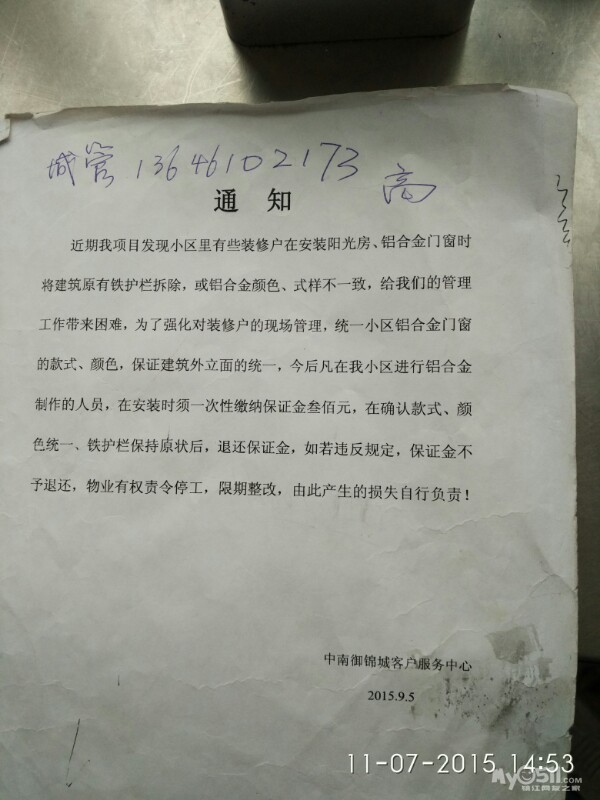 城管 13646102173 高
通 知
近期我项目发现小区里有些装修户在安装阳光房、铝合金门窗时
将建筑原有铁护栏拆除，或铝合金颜色、式样不一致，给我们的管理
工作带来困难，为了强化对装修户的现场管理，统一小区铝合金门窗
的款式、颜色，保证建筑外立面的统一，今后凡在我小区进行铝合金
制作的人员，在安装时须一次性缴纳保证金叁佰元，在确认款式、颜
色统一、铁护栏保持原状后，退还保证金，如若违反规定，保证金不
予退还，物业有权责令停工，限期整改，由此产生的损失自行负责！
中南御锦城客户服务中心
2015.9.5
11-07-2015 14:53
My0511.COM
镇江网友之家